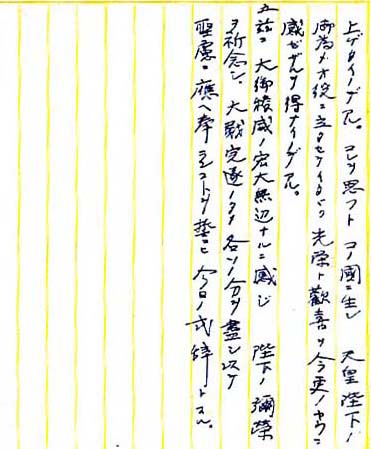 上ゲタイノデアル。コレヲ思フト コノ國ニ生レ 天皇陛下ノ
御為メオ役ニ立タセテイタヾク光榮ト歡喜ヲ今更ノヤウニ
感ゼザルヲ得ナイノデアル。
五茲ニ 大御稜威ノ宏大無辺ナルニ感ジ 陛下ノ彌榮
ヲ祈念シ、大戰完遂ノタメ各ソノ分ヲ盡シ以テ
聖慮ニ應ヘ奉ランコトヲ誓ヒ 今日ノ式辞トスル。